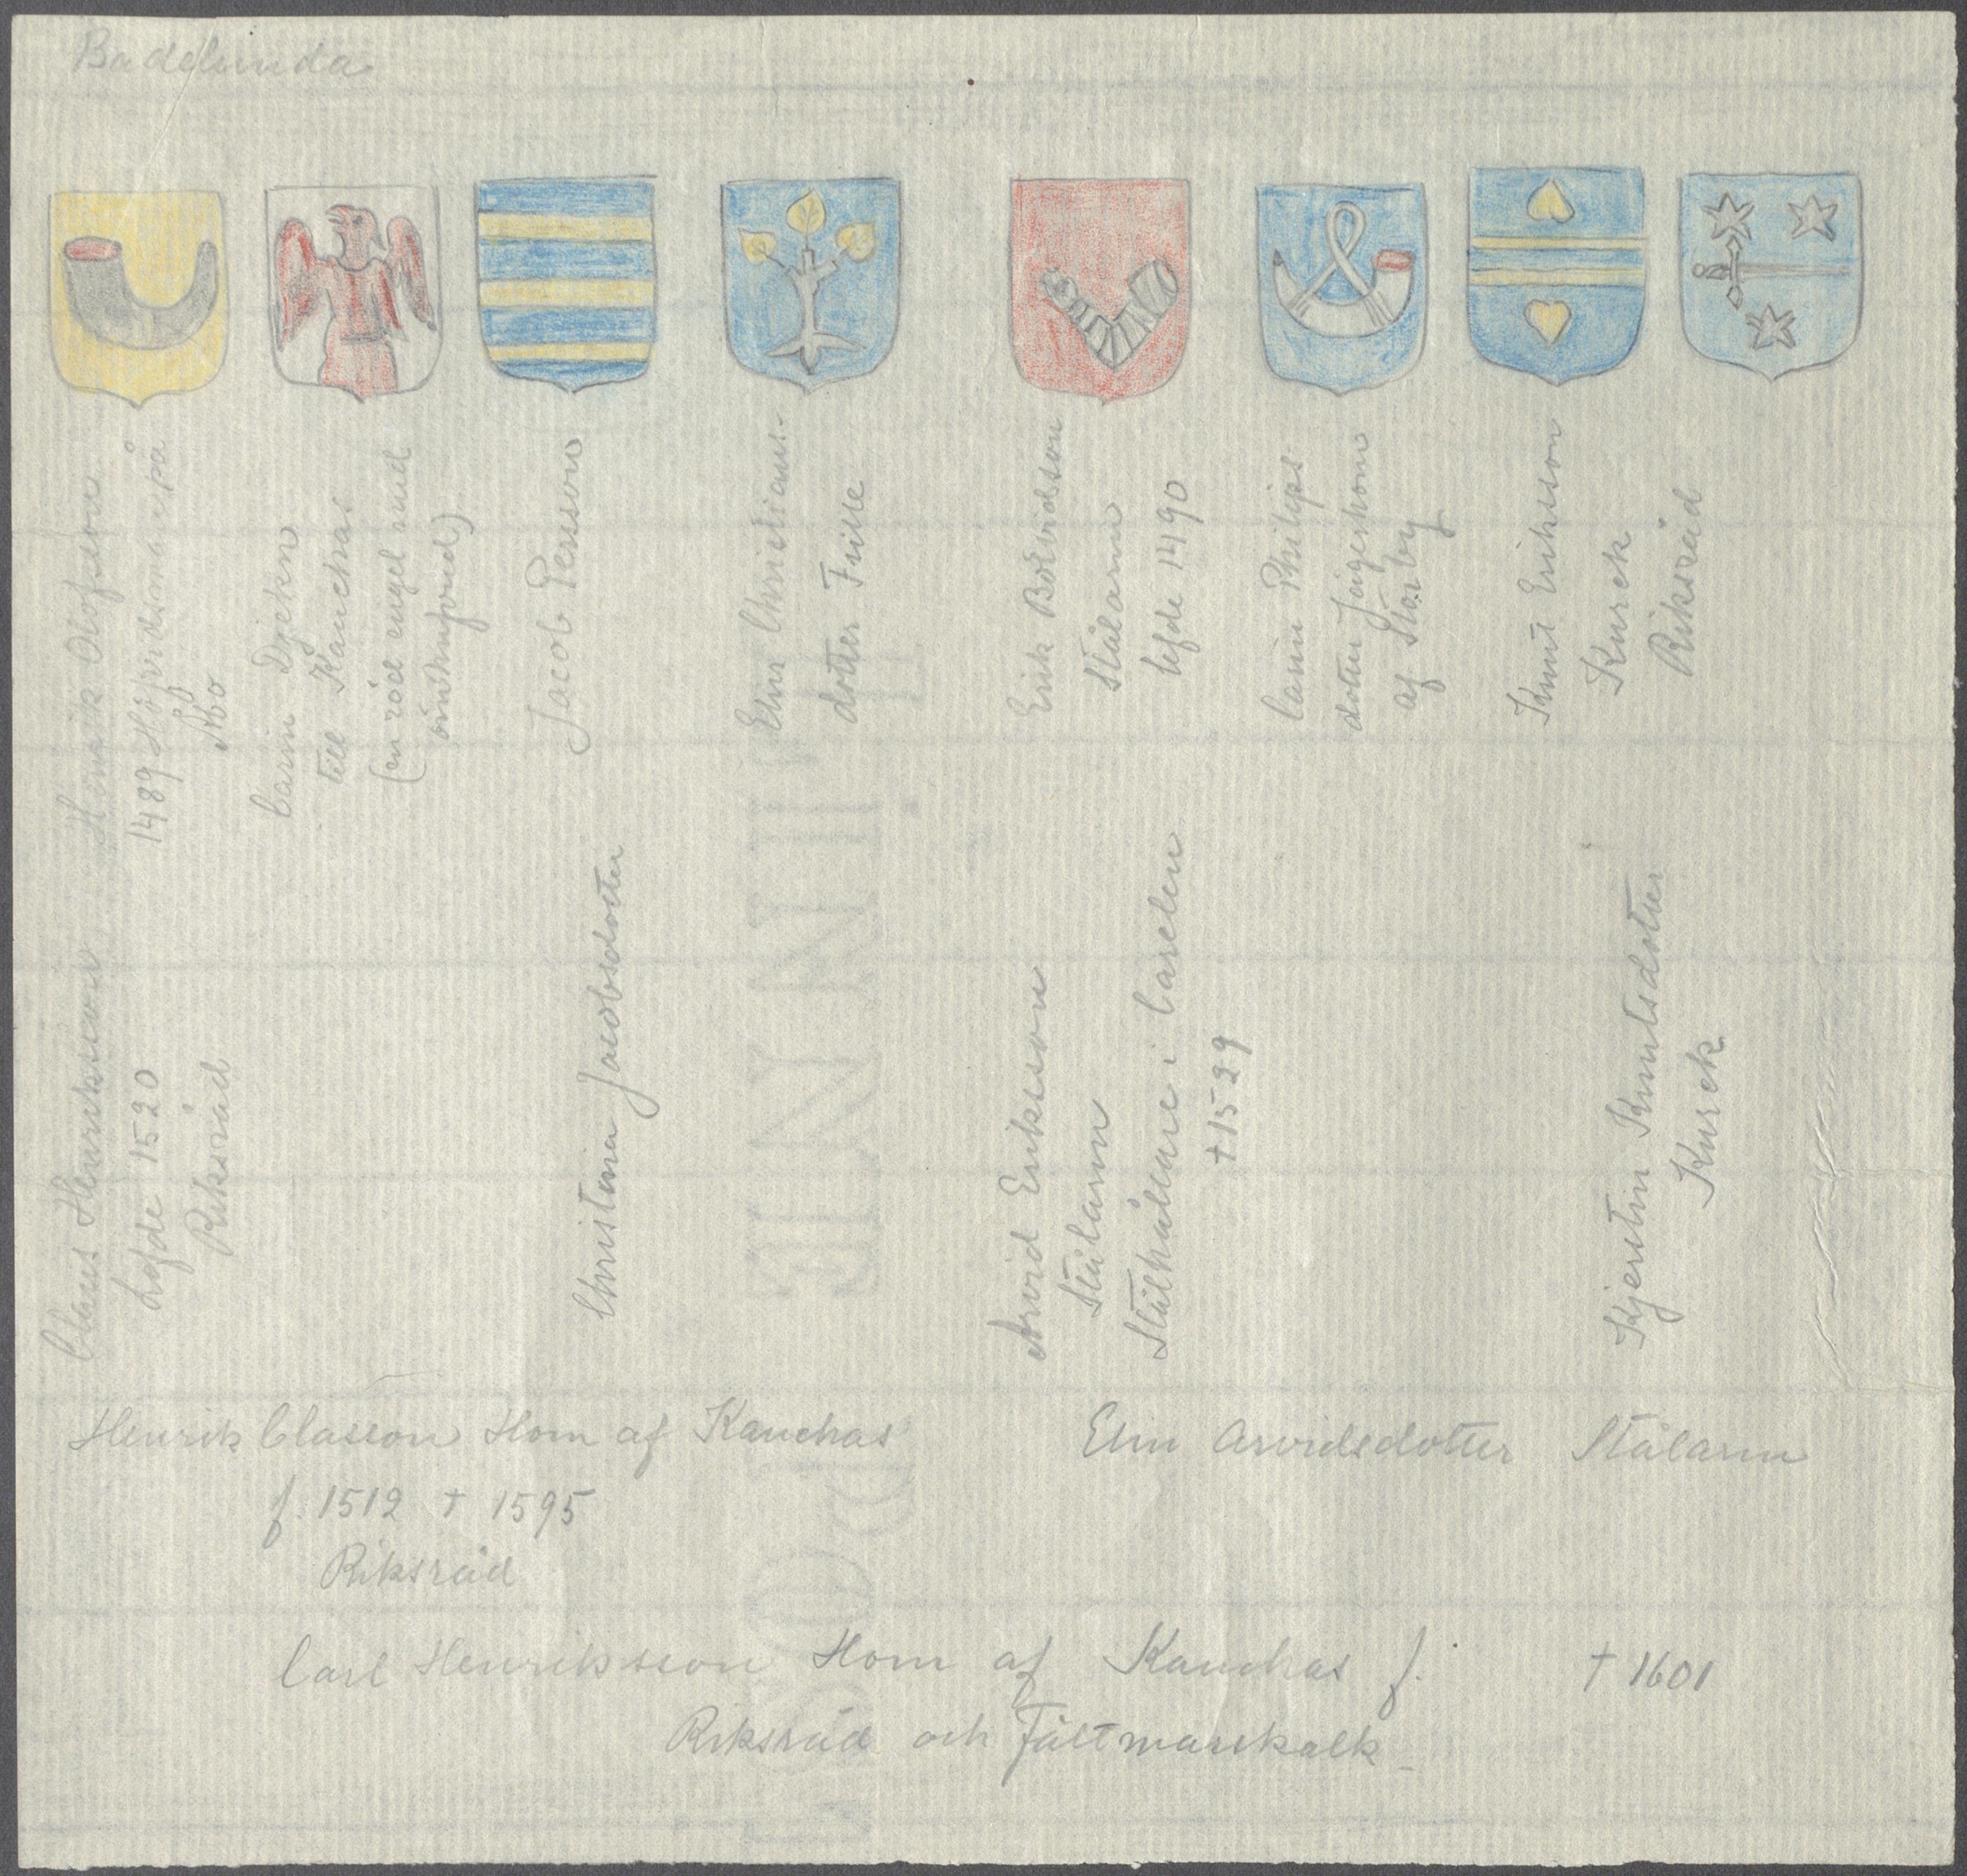 Badelunda
Henrik Olofsson
1489 Höfvidsman på
Åbo
Carin Djekn
till Kanckas
(en röd engel med
Jacob Persson
Elin Christians-
dotter Frille
Erik Bottvidsson
Stålarm
lefde 1490
Carin Philips
dotter Jägerhorn
af Storby
Knut Eriksson
Kurck
Riksråd
Claus Henriksson
Lefde 1520
Riksråd
Christina Jacobsdotter
Arvid Eriksson
Stålarm
Ståthållare i Carelen
† 1529
Kjerstin Knutsdotter
Kurck
Henrik Classon Horn af Kanckas
f. 1512 † 1595
Riksråd
Elin Arvidsdotter Stålarm
Carl Henriksson Horn af Kanckas f. † 1601
Riksråd och Fältmarskalk.